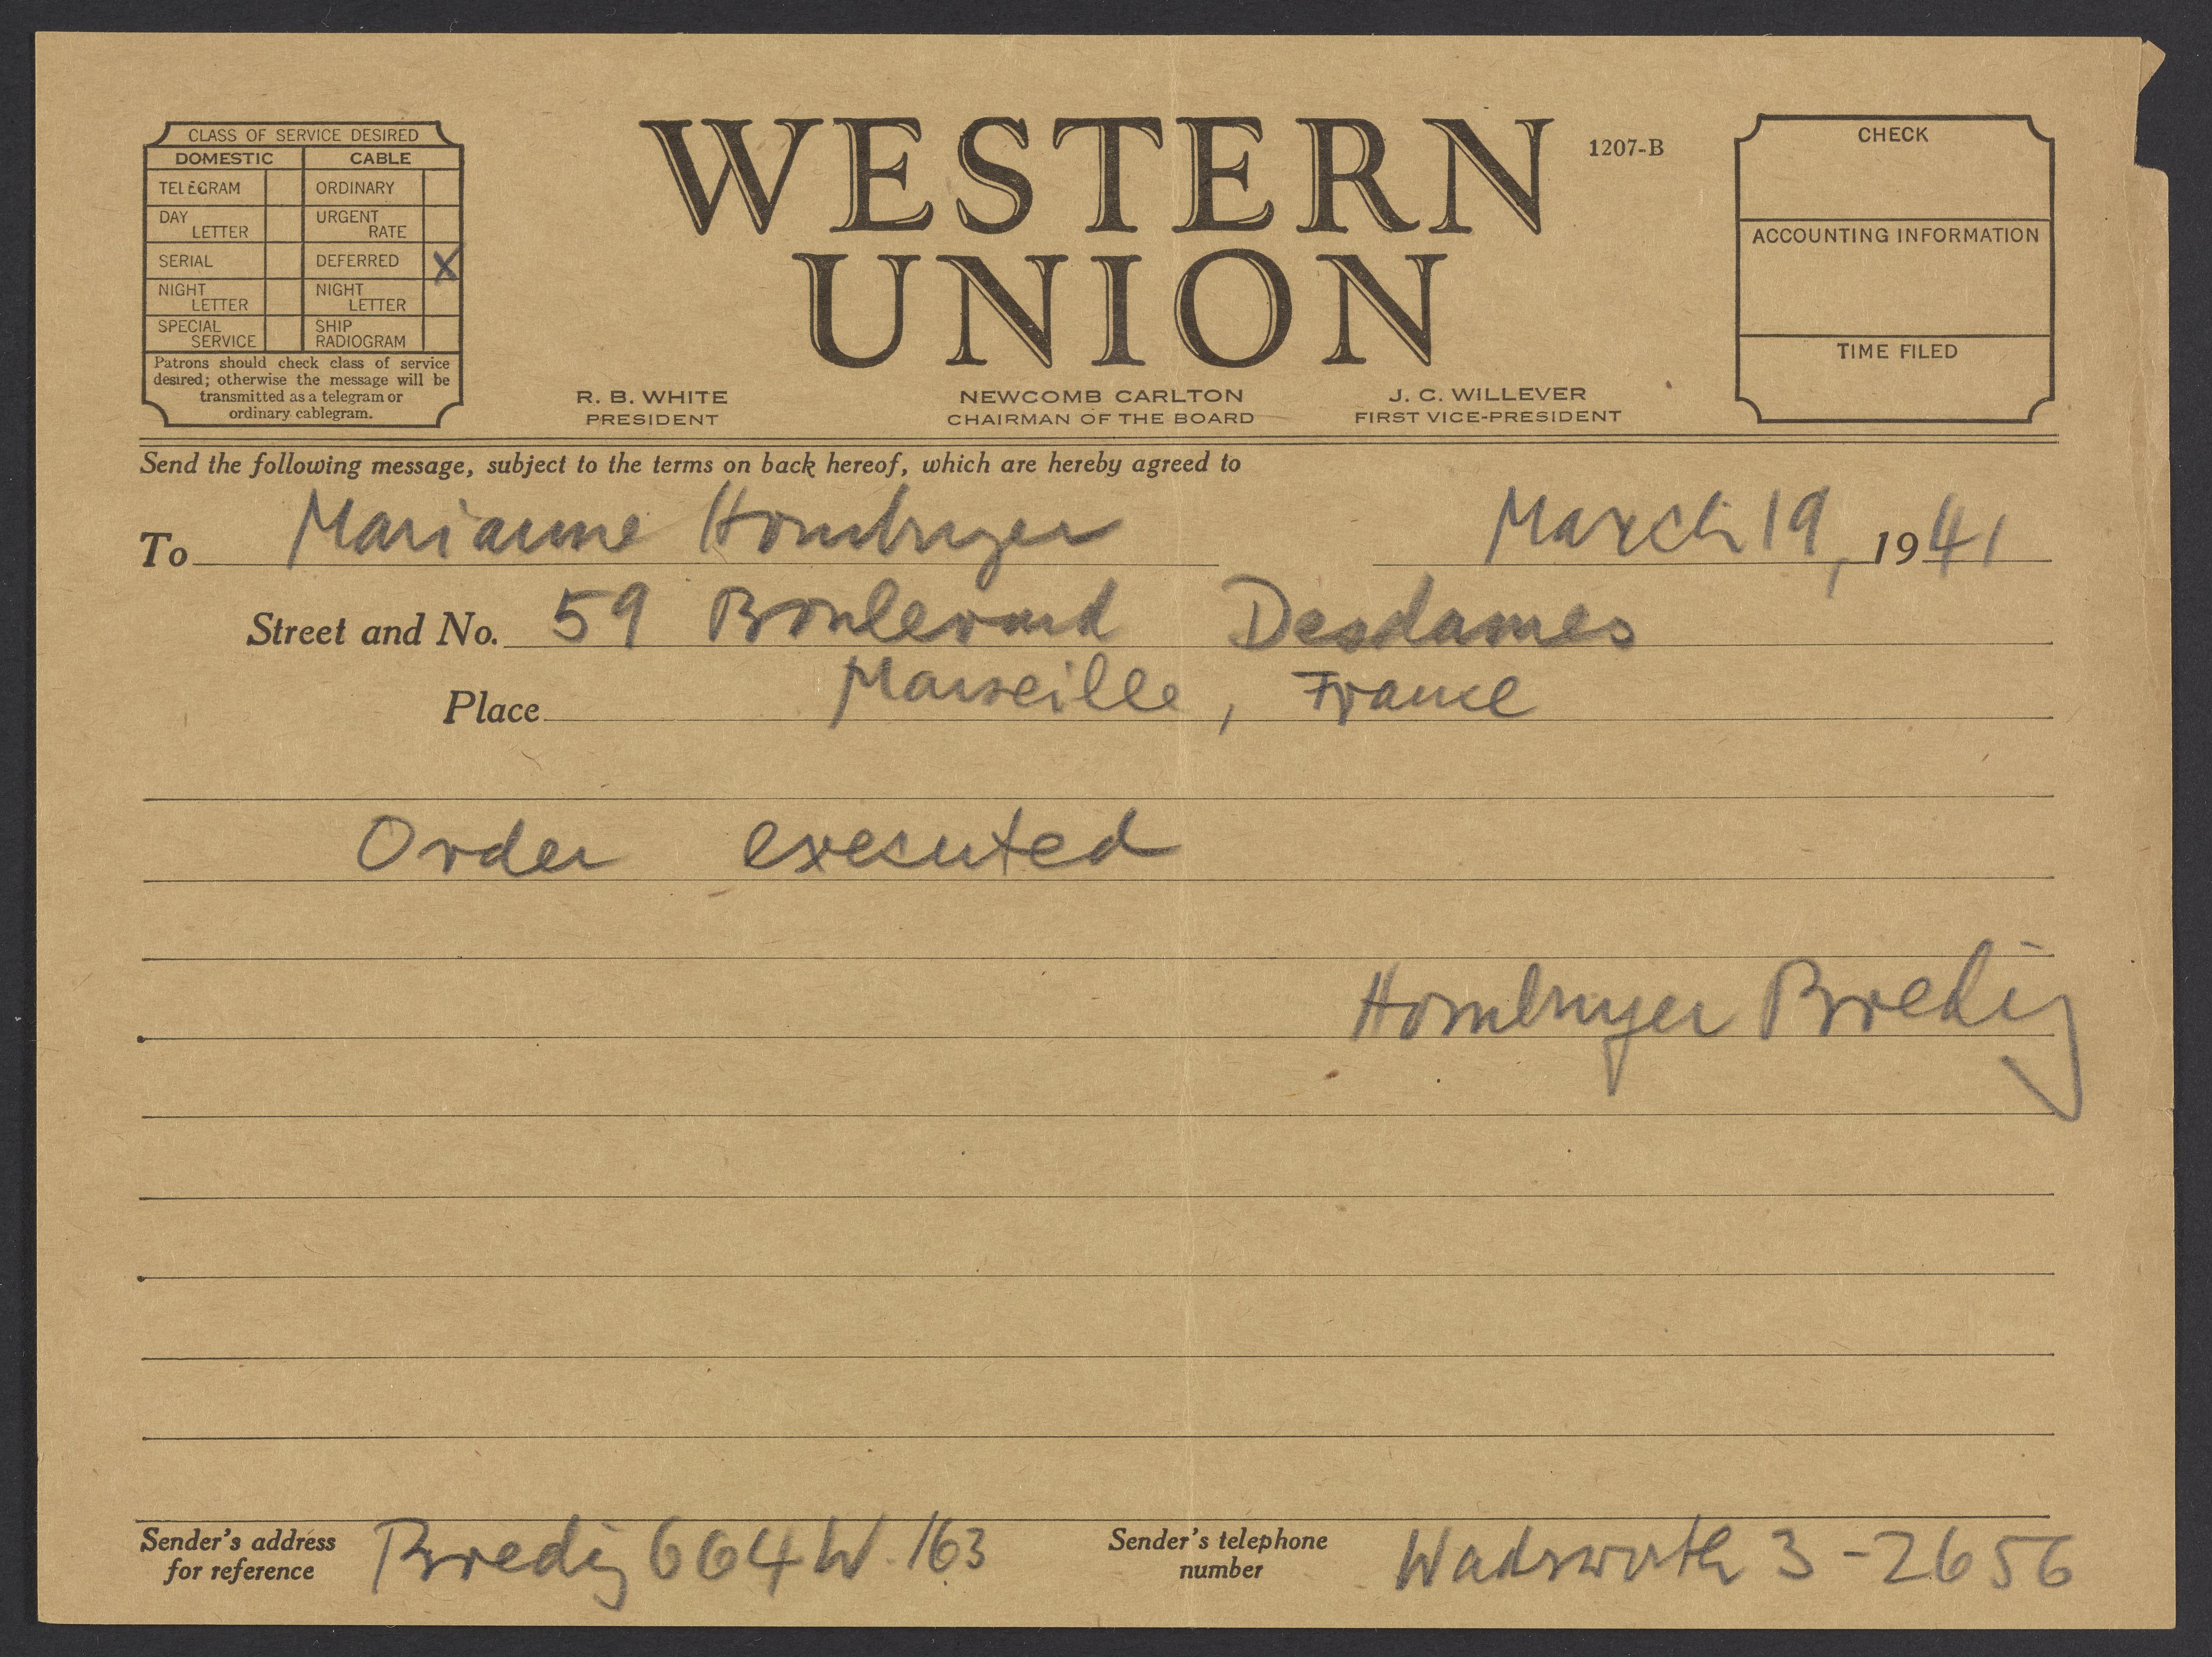 CLASS OF SERVICE DESIRED
DOMESTIC CABLE
TELEGRAM ORDINARY
DAY LETTER URGENT RATE
SERIAL DEFERRED X
NIGHT LETTER NIGHT LETTER
SPECIAL SERVICE SHIP RADIOGRAM
Patrons should check class of service
desired; otherwise the message will be
transmitted as a telegram or
ordinary cablegram.
WESTERN
UNION
1207-B
R. B. WHITE
PRESIDENT
NEWCOMB CARLTON
CHAIRMAN OF THE BOARD
J. C. WILLEVER
FIRST VICE-PRESIDENT
CHECK
ACCOUNTING INFORMATION
TIME FILED
Send the following message, subject to the terms on back hereof, which are hereby agreed to
To Marianne Homburger March 19, 1941
Street and No. 59 Boulevard Desdames
Place Marseille, France
Order executed
Homburger Bredig
Sender's address for reference Bredig 664 W. 163
Sender's telephone number Wadsworth 3-2656